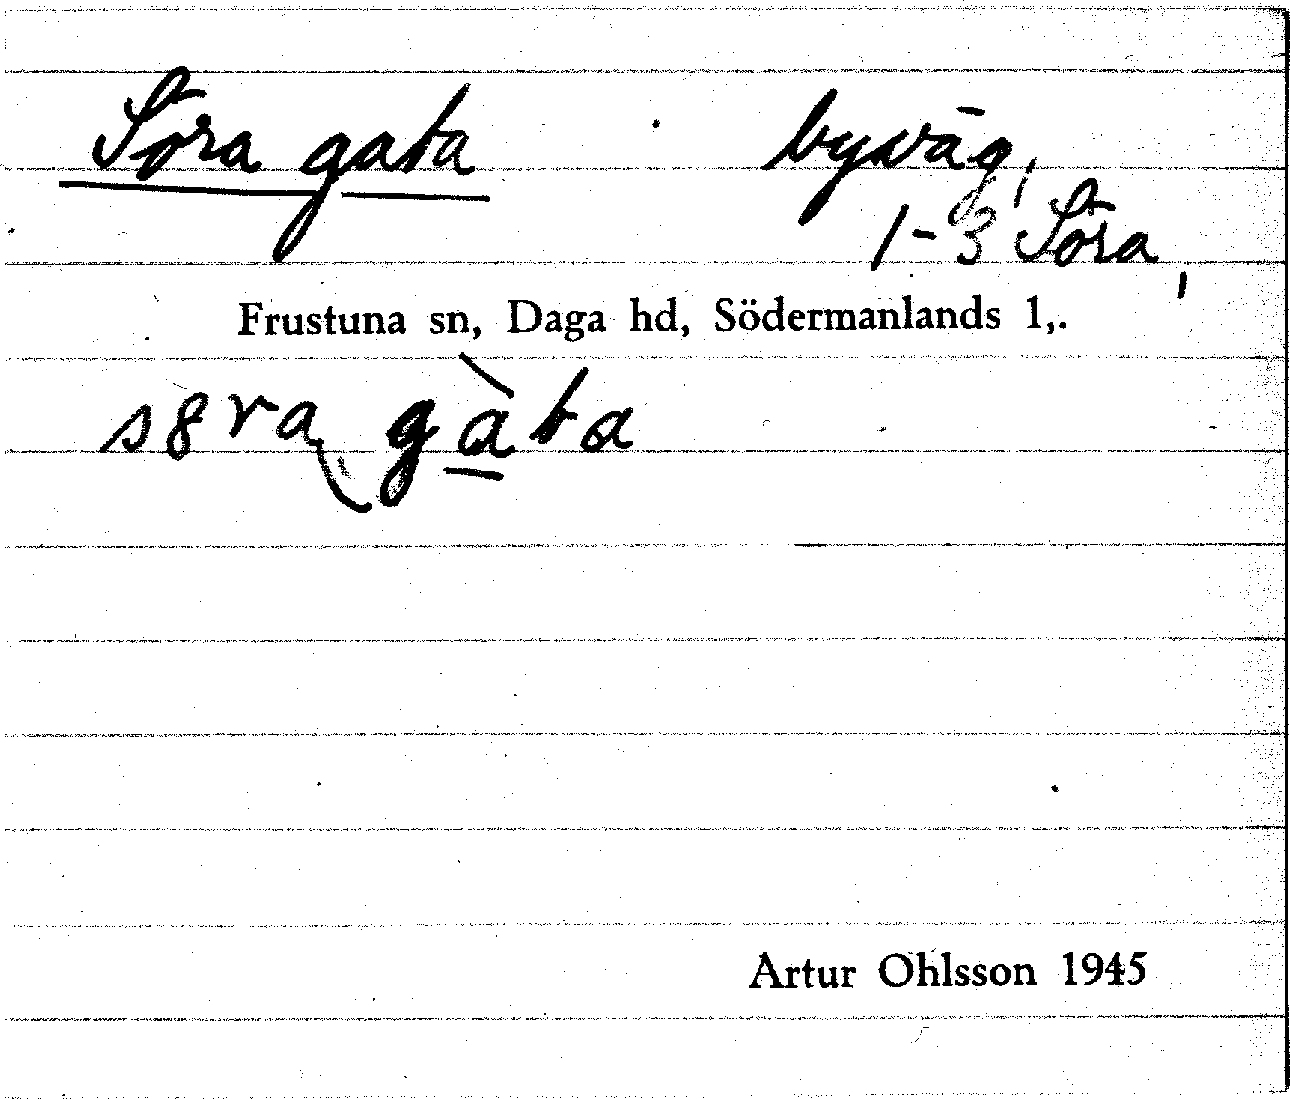 Söra gata byväg,
1-3 Söra,
Frustuna sn, Daga hd, Södermanlands l,.
s8ra gàta
Artur Ohlsson 1945